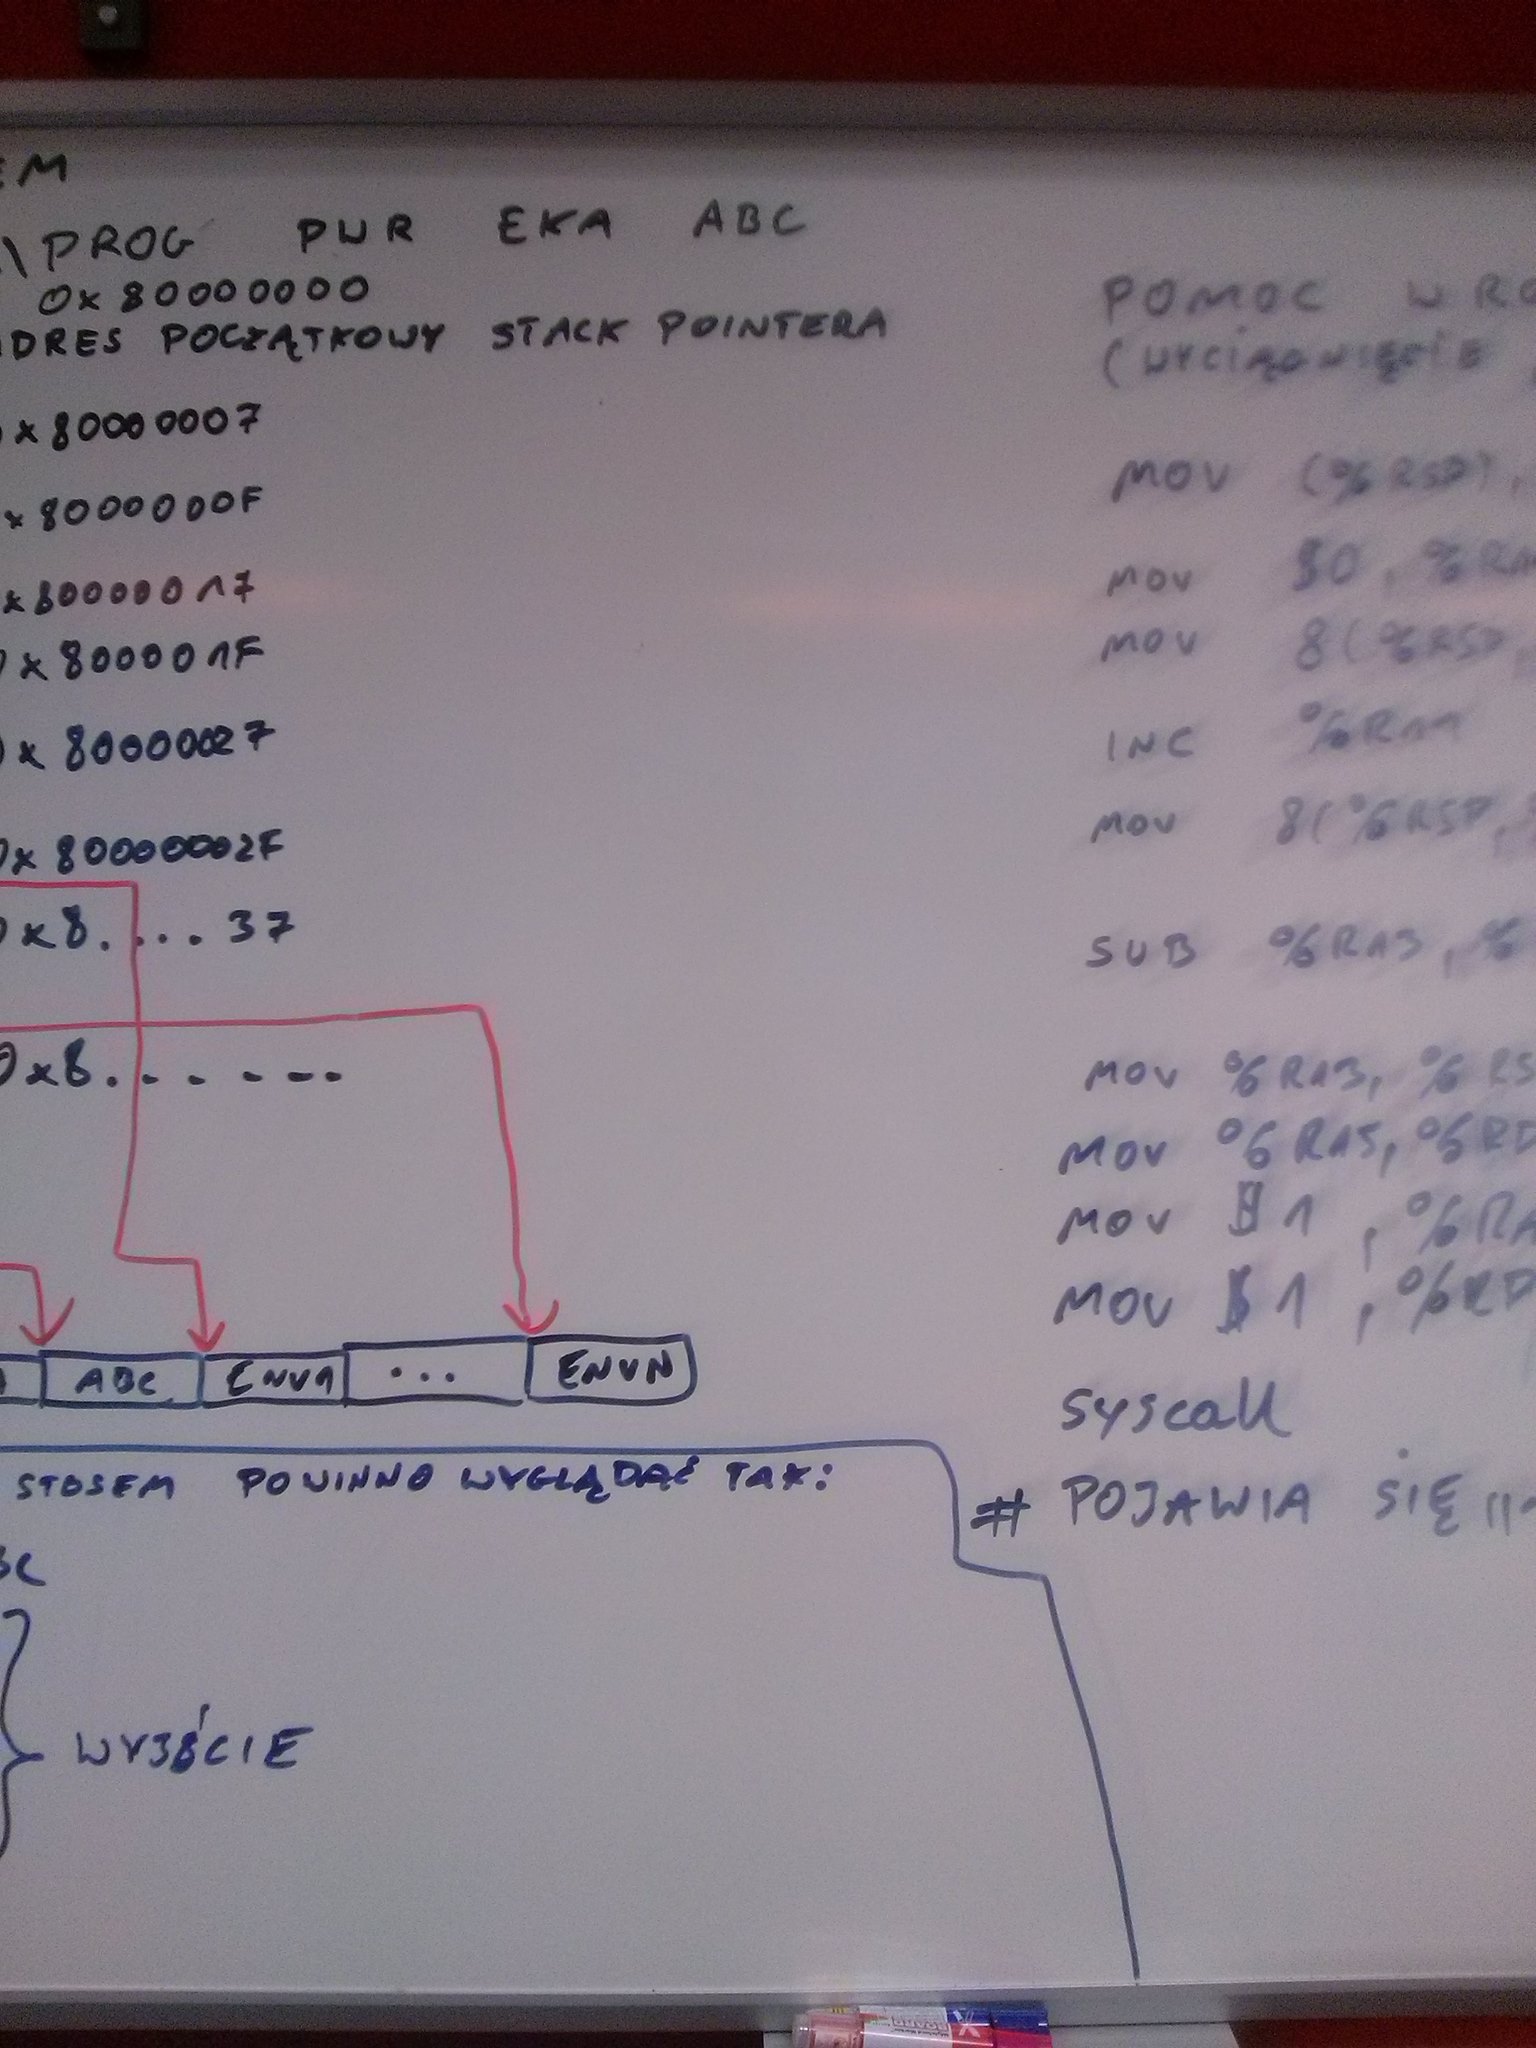 EM
\PROG PWR EKA ABC
0x80000000
ADRES POCZĄTKOWY STACK POINTERA
0x80000007
x8000000F
x80000017
0x800001F
0x80000027
0x80000002F
0x8....37
0x8......
ABC ENV1 ... ENVN
STOSEM POWINNO WYGLĄDAĆ TAK:
BC
WYJŚCIE
POMOC W RO
(WYCIĄGNIĘCIE
MOV (%RSP),
MOV $0, %R11
MOV 8(%RSP,
INC %R11
MOV 8(%RSP,
SUB %R13, %
MOV %R13, %RS
MOV %R15, %RD
MOV $1, %RA
MOV $1, %RD
syscall
# POJAWIA SIĘ